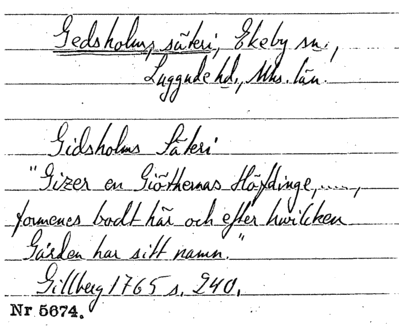 Gedsholms, säteri, Ekeby sn.,
Luggude hd., Mhs. län.
Gidsholms Säteri
"Gizer en Giöthernas Höfdinge, .....,
formenes bodt här och efter hwilcken
Gården har sitt namn."
Gillberg 1765 s. 240.
Nr 5674.